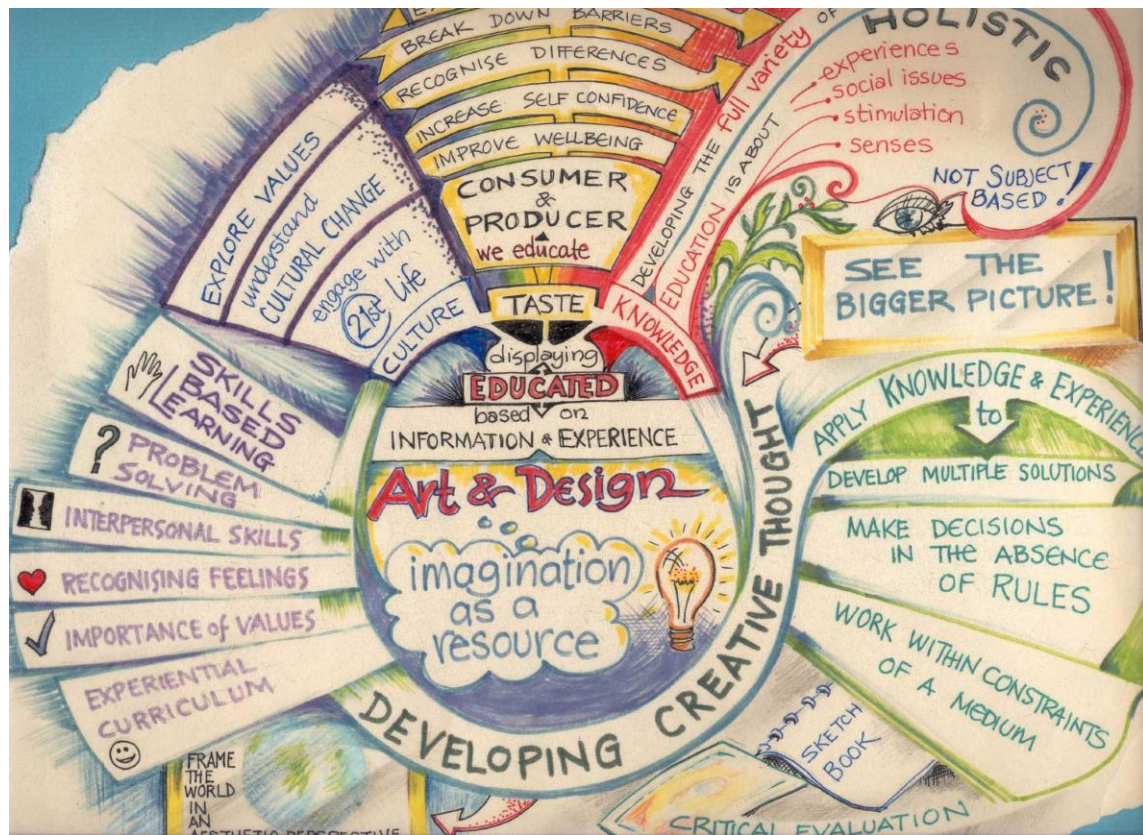 BREAK DOWN BARRIERS
RECOGNISE DIFFERENCES
INCREASE SELF CONFIDENCE
IMPROVE WELLBEING
CONSUMER
&
PRODUCER
we educate
TASTE
displaying
EDUCATED
based on
INFORMATION & EXPERIENCE
Art & Design
imagination
as a
resource
DEVELOPING CREATIVE THOUGHT
CULTURE
EXPLORE VALUES
understand
CULTURAL CHANGE
engage with
21st Life
SKILLS
BASED
LEARNING
?
PROBLEM
SOLVING
INTERPERSONAL SKILLS
RECOGNISING FEELINGS
IMPORTANCE of VALUES
EXPERIENTIAL
CURRICULUM
FRAME
THE
WORLD
IN
AN
AESTHETIC PERSPECTIVE
KNOWLEDGE
DEVELOPING THE full variety OF
EDUCATION IS ABOUT
experiences
social issues
stimulation
senses
HOLISTIC
NOT SUBJECT
BASED!
SEE THE
BIGGER PICTURE!
APPLY KNOWLEDGE & EXPERIENCE
to
DEVELOP MULTIPLE SOLUTIONS
MAKE DECISIONS
IN THE ABSENCE
OF RULES
WORK WITHIN CONSTRAINTS
OF A
MEDIUM
SKETCH
BOOK
CRITICAL EVALUATION